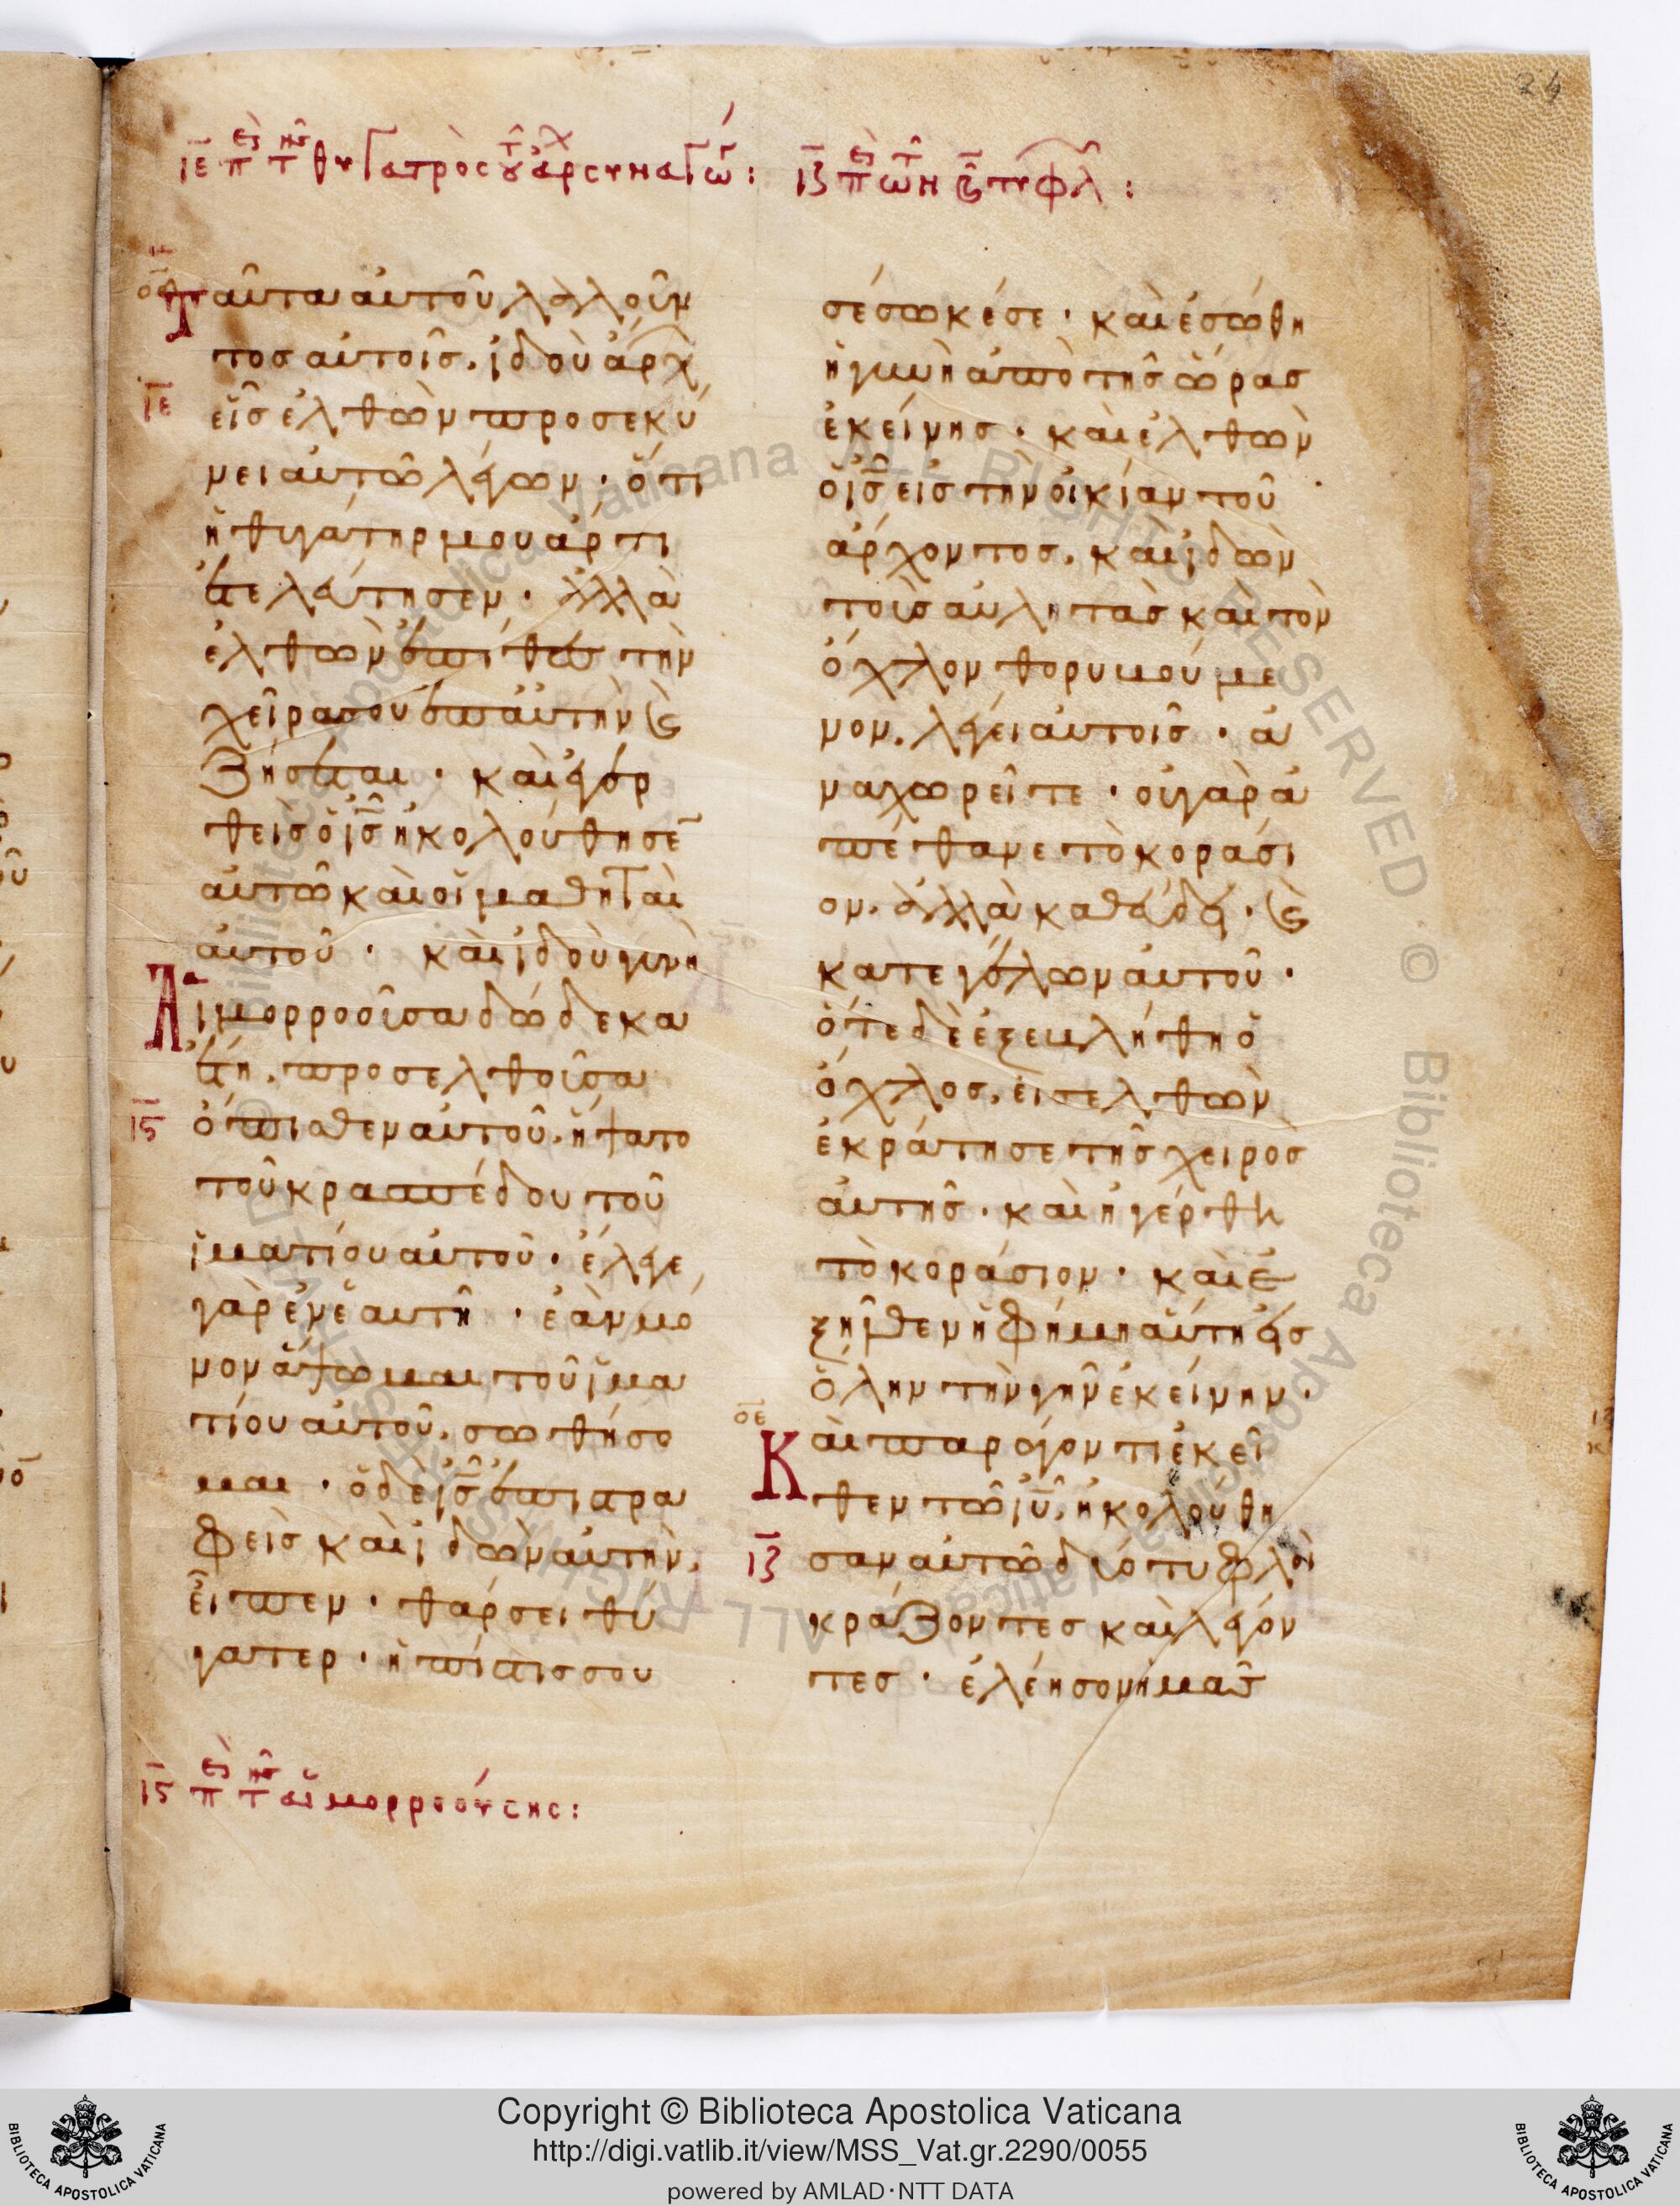 24
ιε πε τῆς θυγατρὸς τοῦ ἀρχισυναγώγ:
ιζ πε τῶν β τυφλ:
οδ
Ταῦτα αὐτοῦ λαλοῦν
τος αὐτοῖς, ἰδοὺ ἀρχ
ιε
εἷς ἐλθὼν προσεκύ
νει αὐτῶ λέγων · ὅτι
ἡ θυγάτηρ μου ἄρτι
ἐτελεύτησεν · ἀλλὰ
ἐλθὼν ἐπίθες τὴν
χεῖρα σου ἐπ αὐτὴν καὶ
ζήσεται · καὶ ἐγερ
θεὶς ὁ ις ἠκολούθησε̄
αὐτῶ καὶ οἱ μαθηταὶ
αὐτοῦ · καὶ ἰδοὺ γυνὴ
Αἱμορροοῦσα δώδεκα
ἔτη, προσελθοῦσα
ις
ὄπισθεν αὐτοῦ, ἥψατο
τοῦ κρασπέδου τοῦ
ἱματίου αὐτοῦ · ἔλεγε
γὰρ ἐν ἑαυτῆ · ἐὰν μό
νον ἅψωμαι τοῦ ἱμα
τίου αὐτοῦ, σωθήσο
μαι · ὁ δὲ ις ἐπιστρα
φεὶς καὶ ἰδὼν αὐτὴν,
εἶπεν · θάρσει θύ
γατερ · ἡ πίστις σου
ις πε τῆς αἱμορροούσης:
σέσωκέ σε · καὶ ἐσώθη
ἡ γυνὴ ἀπὸ τῆς ὥρας
ἐκείνης · καὶ ἐλθὼν
ὁ ις εἰς τὴν οἰκίαν τοῦ
ἄρχοντος, καὶ ἰδὼν
τοὺς αὐλητὰς καὶ τὸν
ὄχλον θορυβούμε
νον, λέγει αὐτοῖς · ἀ
ναχωρεῖτε · οὐ γὰρ ἀ
πέθανε τὸ κοράσι
ον, ἀλλὰ καθεύδει · καὶ
κατεγέλων αὐτοῦ ·
ὅτε δὲ ἐξεβλήθη ὁ
ὄχλος, εἰσελθὼν
ἐκράτησε τῆς χειρὸς
αὐτῆς · καὶ ἠγέρθη
τὸ κοράσιον · καὶ ἐ
ξῆλθεν ἡ φήμη αὕτη εἰς
ὅλην τὴν γῆν ἐκείνην ·
οε
Καὶ παράγοντι ἐκεῖ
θεν τῶ ιυ, ἠκολούθη
ιζ
σαν αὐτῶ δύο τυφλοὶ
κράζοντες καὶ λέγον
τες · ἐλέησον ἡμᾶς
Copyright © Biblioteca Apostolica Vaticana
http://digi.vatlib.it/view/MSS_Vat.gr.2290/0055
powered by AMLAD·NTT DATA
BIBLIOTECA APOSTOLICA VATICANA
BIBLIOTECA APOSTOLICA VATICANA